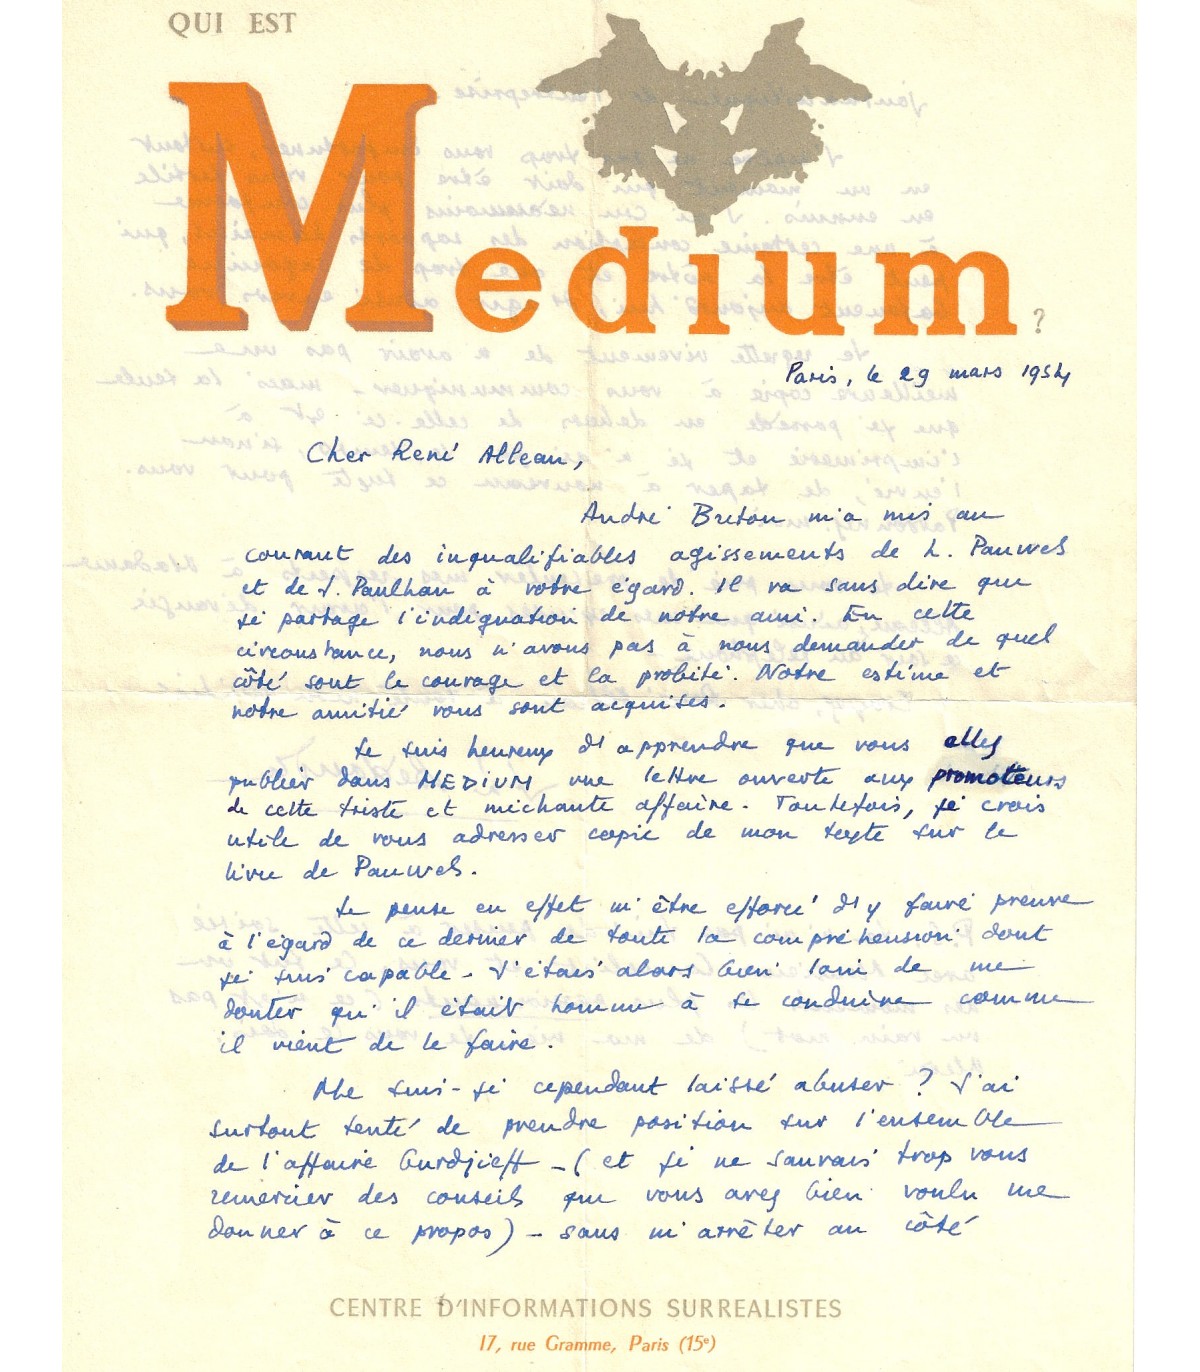 QUI EST
Medium ?
Paris, le 29 mars 1954
Cher René Alleau,
André Breton m'a mis au
courant des inqualifiables agissements de L. Pauwels
et de J. Paulhan à votre égard. Il va sans dire que
je partage l'indignation de notre ami. En cette
circonstance, nous n'avons pas à nous demander de quel
côté sont le courage et la probité. Notre estime et
notre amitié vous sont acquises.
Je suis heureux d'apprendre que vous allez
publier dans MEDIUM une lettre ouverte aux promoteurs
de cette triste et méchante affaire. Toutefois, je crois
utile de vous adresser copie de mon texte sur le
livre de Pauwels.
Je pense en effet m'être efforcé d'y faire preuve
à l'égard de ce dernier de toute la compréhension dont
je suis capable - J'étais alors bien loin de me
douter qu'il était homme à se conduire comme
il vient de le faire.
Me suis-je cependant laissé abuser ? J'ai
surtout tenté de prendre position sur l'ensemble
de l'affaire Gurdjieff - (et je ne saurais trop vous
remercier des conseils que vous avez bien voulu me
donner à ce propos) - sans m'arrêter au côté
CENTRE D'INFORMATIONS SURREALISTES
17, rue Gramme, Paris (15e)